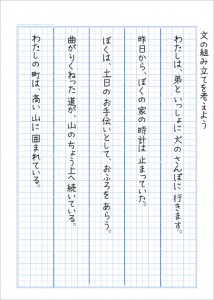 文の組み立てを考えよう
わたしは、弟といっしょに犬のさんぽに行きます。
昨日から、ぼくの家の時計は止まっていた。
ぼくは、土日のお手伝いとして、おふろをあらう。
曲がりくねった道が、山のちょう上へ続いている。
わたしの町は、高い山に囲まれている。